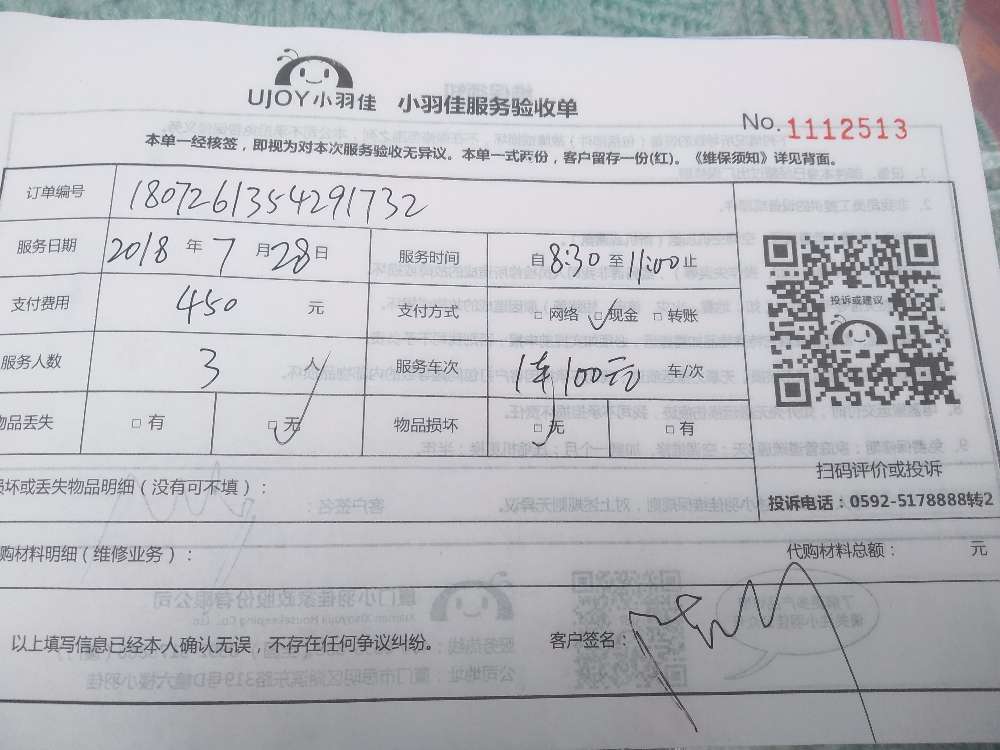 UJOY小羽佳 小羽佳服务验收单
No.1112513
本单一经核签，即视为对本次服务验收无异议。本单一式两份，客户留存一份(红)。《维保须知》详见背面。
订单编号 1807261354291732
服务日期 2018 年 7 月 28 日 服务时间 自 8:30 至 11:00 止
支付费用 450 元 支付方式 □ 网络 ☑ 现金 □ 转账
投诉或建议
服务人数 3 人 服务车次 1车100元 车/次
物品丢失 □ 有 ☑ 无 物品损坏 ☑ 无 □ 有
扫码评价或投诉
投诉电话：0592-5178888转2
损坏或丢失物品明细（没有可不填）：
购材料明细（维修业务）： 代购材料总额： 元
以上填写信息已经本人确认无误，不存在任何争议纠纷。 客户签名：